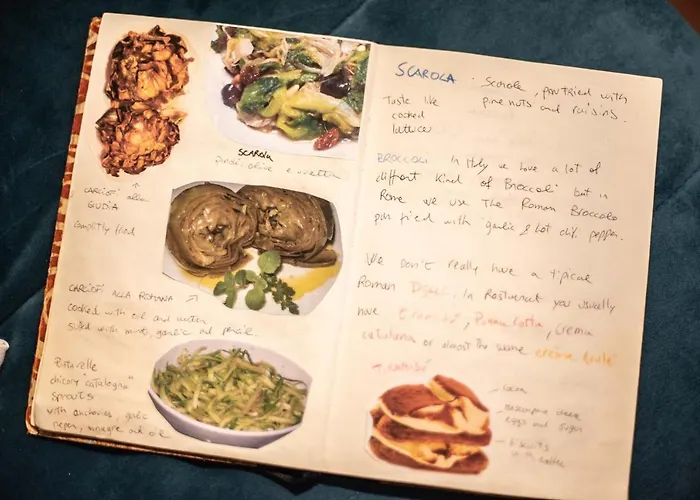 SCAROLA
pinoli, olive e uvetta
CARCIOFI alla
GIUDIA
Complitly fried
CARCIOFI ALLA ROMANA
cooked with oil and water
with mint, garlic and
Puntarelle
chicory "catalogna"
sprouts
with anchovies, garlic
vinegar and oil
SCAROLA : Scarola, panfried with
Taste like pine nuts and raisins.
cooked
lattuce
BROCCOLI In Italy we have a lot of
different kind of Broccoli but in
Rome we use the Roman Broccolo
pan fried with garlic & hot chili pepper.
We don't really have a tipical
Roman In Restaurant you usually
have Tiramisù, Panna Cotta, Crema
catalana or almost the same crème brulé
cocoa
mascarpone cheese
eggs and sugar
biscuits
in coffee